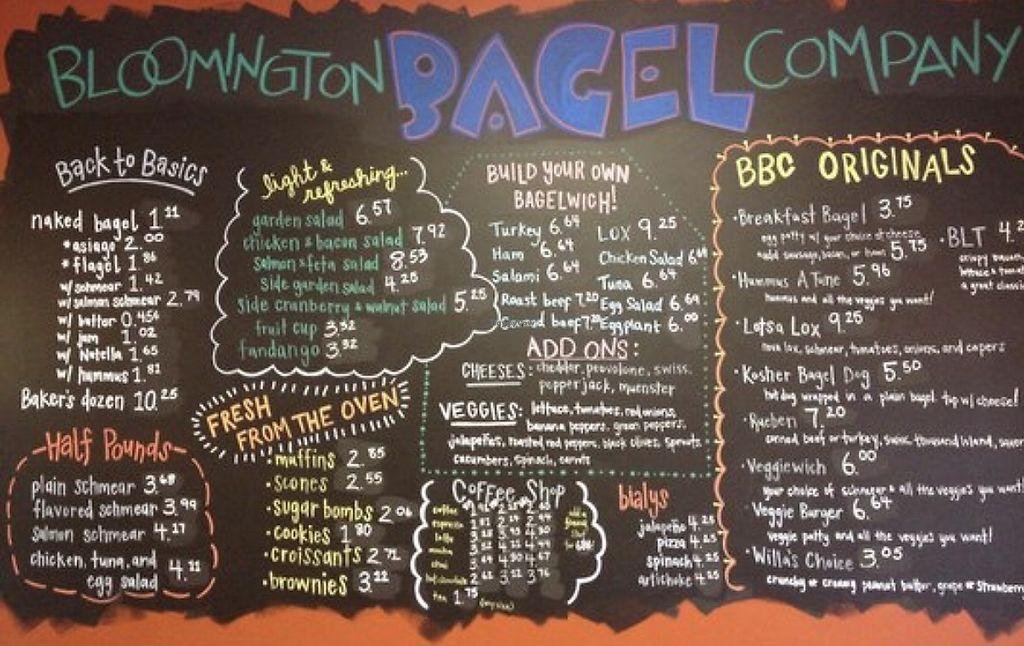 BLOOMINGTON BAGEL COMPANY
Back to Basics
naked bagel 1.21
*asiago 2.00
*flagel 1.86
w/ schmear 1.42
w/ salmon schmear 2.79
w/ butter 0.45¢
w/ jam 1.02
w/ Nutella 1.65
w/ hummus 1.81
Baker's dozen 10.25
Half Pounds
plain schmear 3.68
flavored schmear 3.99
salmon schmear 4.27
chicken, tuna, and
egg salad 4.11
light &
refreshing...
garden salad 6.57
chicken & bacon salad 7.92
salmon & feta salad 8.53
side garden salad 4.25
side cranberry & walnut salad 5.25
fruit cup 3.52
fandango 3.32
FRESH
FROM THE OVEN
•muffins 2.85
•scones 2.55
•sugar bombs 2.06
•cookies 1.80
•croissants 2.71
•brownies 3.22
BUILD YOUR OWN
BAGELWICH!
Turkey 6.64 LOX 9.25
Ham 6.64 Chicken Salad 6.64
Salami 6.64 Tuna 6.64
Roast beef 7.20 Egg Salad 6.64
Corned beef 7.20 Eggplant 6.00
ADD ONS:
CHEESES: cheddar, provolone, swiss,
pepperjack, muenster
VEGGIES: lettuce, tomatoes, red onions,
banana peppers, green peppers,
jalapeños, roasted red peppers, black olives, sprouts
cucumbers, spinach, carrots
Coffee Shop
coffee
espresso
latte
mocha
chai
hot chocolate
tea 1.75
bialys
jalapeño 4.25
pizza 4.25
spinach 4.25
artichoke 4.25
BBC ORIGINALS
•Breakfast Bagel 3.75
egg patty w/ your choice of cheese
add sausage, bacon, or ham 5.75
•Hummus A Tune 5.96
hummus and all the veggies you want!
•Lotsa Lox 9.25
nova lox, schmear, tomatoes, onions, and capers
•Kosher Bagel Dog 5.50
hot dog wrapped in a plain bagel top w/ cheese!
•Rueben 7.20
corned beef or turkey, swiss, thousand island,
•Veggiewich 6.00
your choice of schmear & all the veggies you want
•Veggie Burger 6.64
veggie patty and all the veggies you want!
•Willa's Choice 3.05
crunchy or creamy peanut butter, grape or strawberry
•BLT 4.2
crispy bacon
lettuce & toma
a great classic